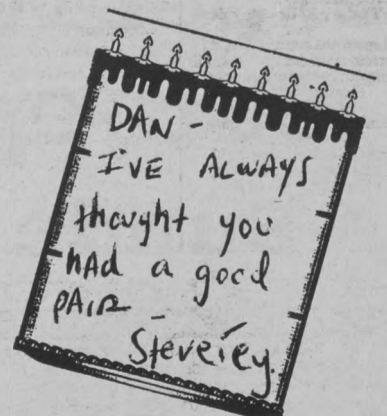 DAN -
I'VE ALWAYS
thought you
hAd a good
pAIR -
Steverey.